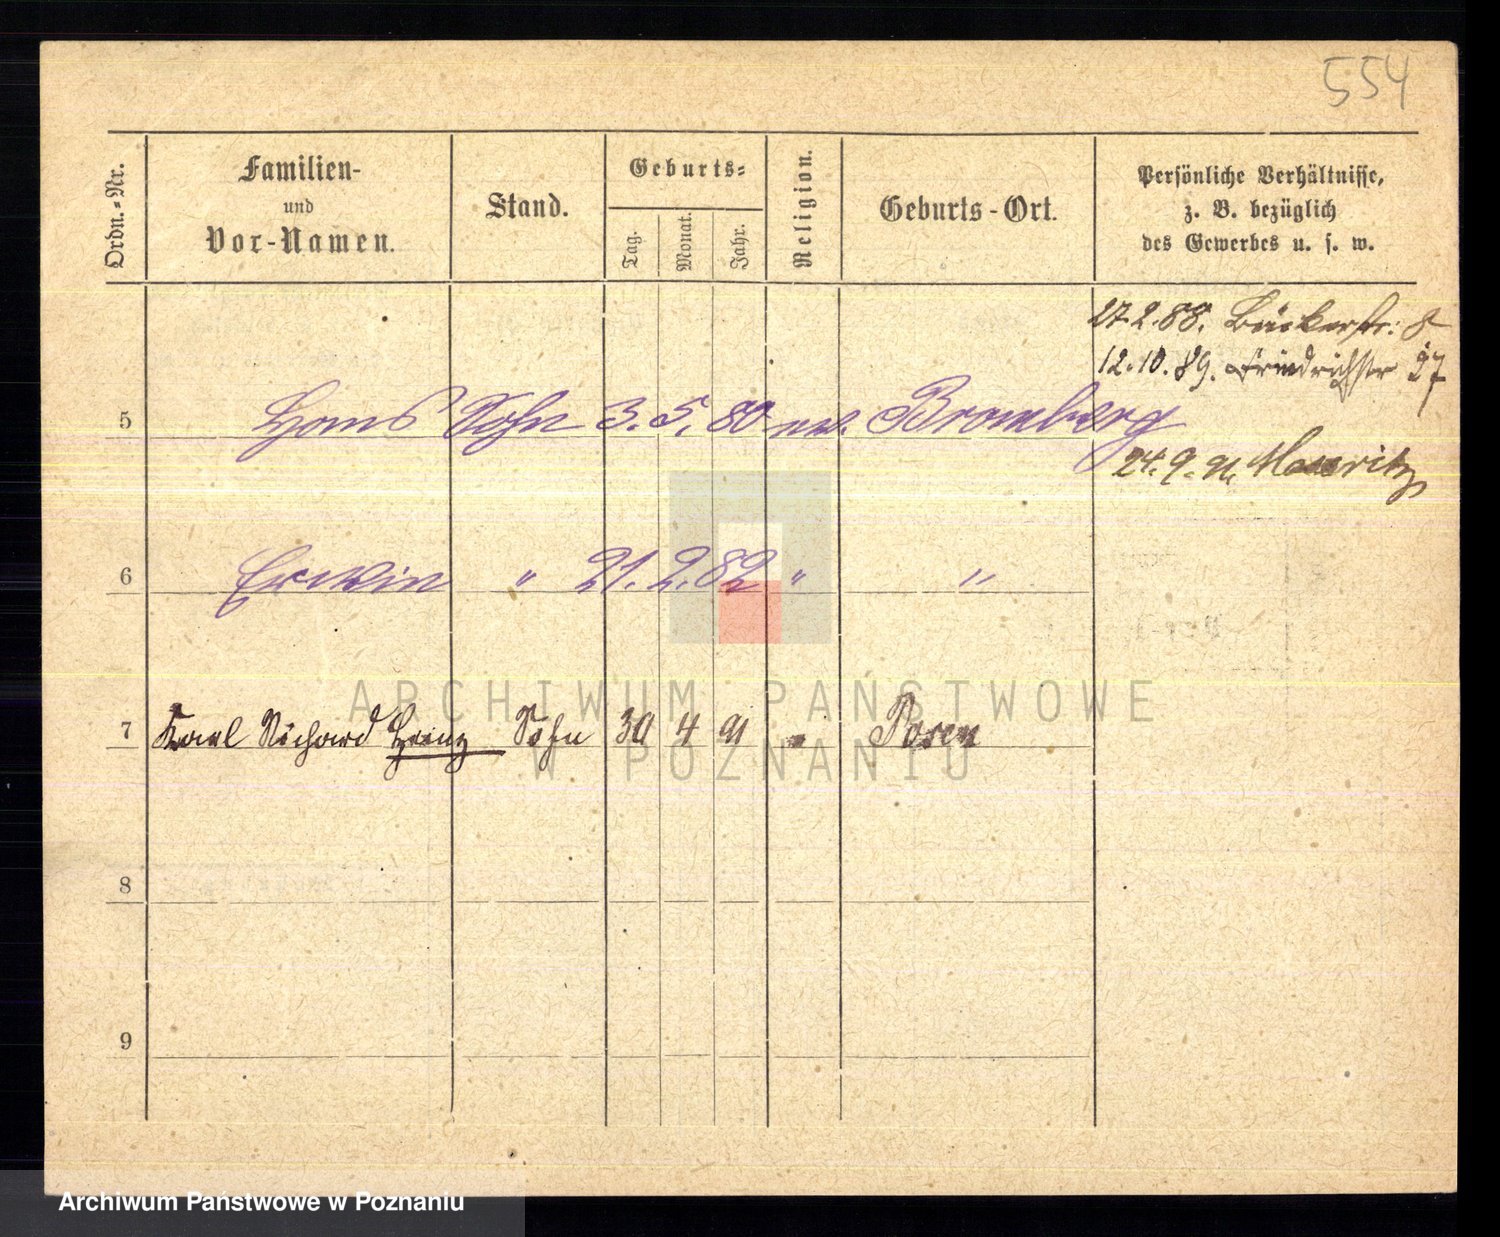 554
Ordn.-Nr.
Familien-
und
Vor-Namen.
Stand.
Geburts-
Tag.
Monat.
Jahr.
Religion.
Geburts-Ort.
Persönliche Verhältnisse,
z. B. bezüglich
des Gewerbes u. s. w.
27.2.88. Bäckerstr: 8
12.10.89. Friedrichstr 27
5 Hans Sohn 3. 5. 80 ev. Bromberg
24.9.91. Meseritz
6 Erwin " 21. 2. 82 " "
ARCHIWUM PAŃSTWOWE
7 Karl Richard Heinz Sohn 30 4 91 " Posen
W POZNANIU
8
9
Archiwum Państwowe w Poznaniu